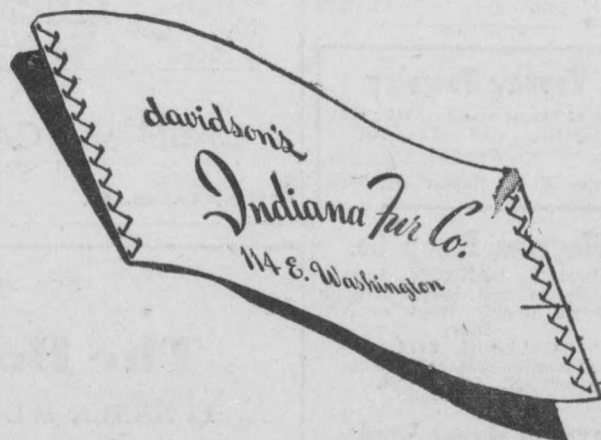 davidson's
Indiana Fur Co.
114 E. Washington